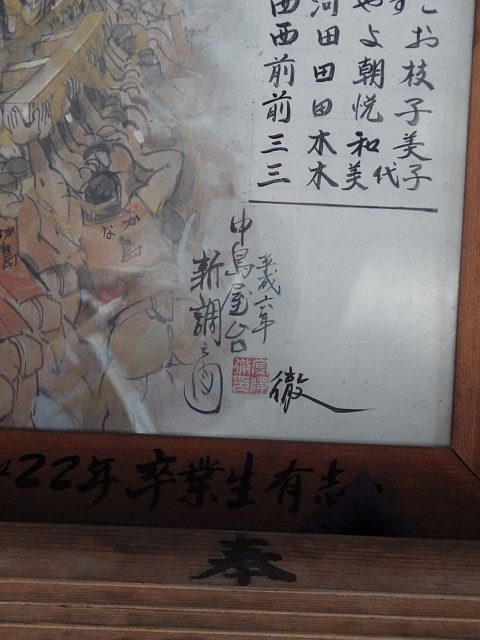 西田よお
前田朝枝
前田悦子
三木和美
三木美代子
平成六年
中島屋台
新調之図
徹
なか島
22年卒業生有志
奉